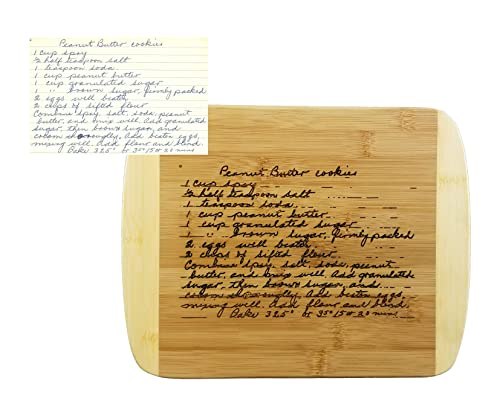 Peanut Butter cookies
1 cup spry
1/2 half teaspoon salt
1 teaspoon soda
1 cup peanut butter
1 cup granulated sugar
1 " brown sugar, firmly packed
2 eggs well beaten
2 cups of sifted flour
Combine spry, salt, soda, peanut
butter, and mix well. Add granulated
sugar, then brown sugar, and
cream thoroughly. Add beaten eggs,
mixing well. Add flour and blend.
Bake 325° to 350 15 or 20 mins
Peanut Butter cookies
1 cup spry
1/2 half teaspoon salt
1 teaspoon soda
1 cup peanut butter
1 cup granulated sugar
1 " brown sugar, firmly packed
2 eggs well beaten
2 cups of sifted flour
Combine spry, salt, soda, peanut
butter, and mix well. Add granulated
sugar, then brown sugar, and
Add beaten eggs,
mixing well. Add flour and blend.
Bake 325° 15 or 20 mins